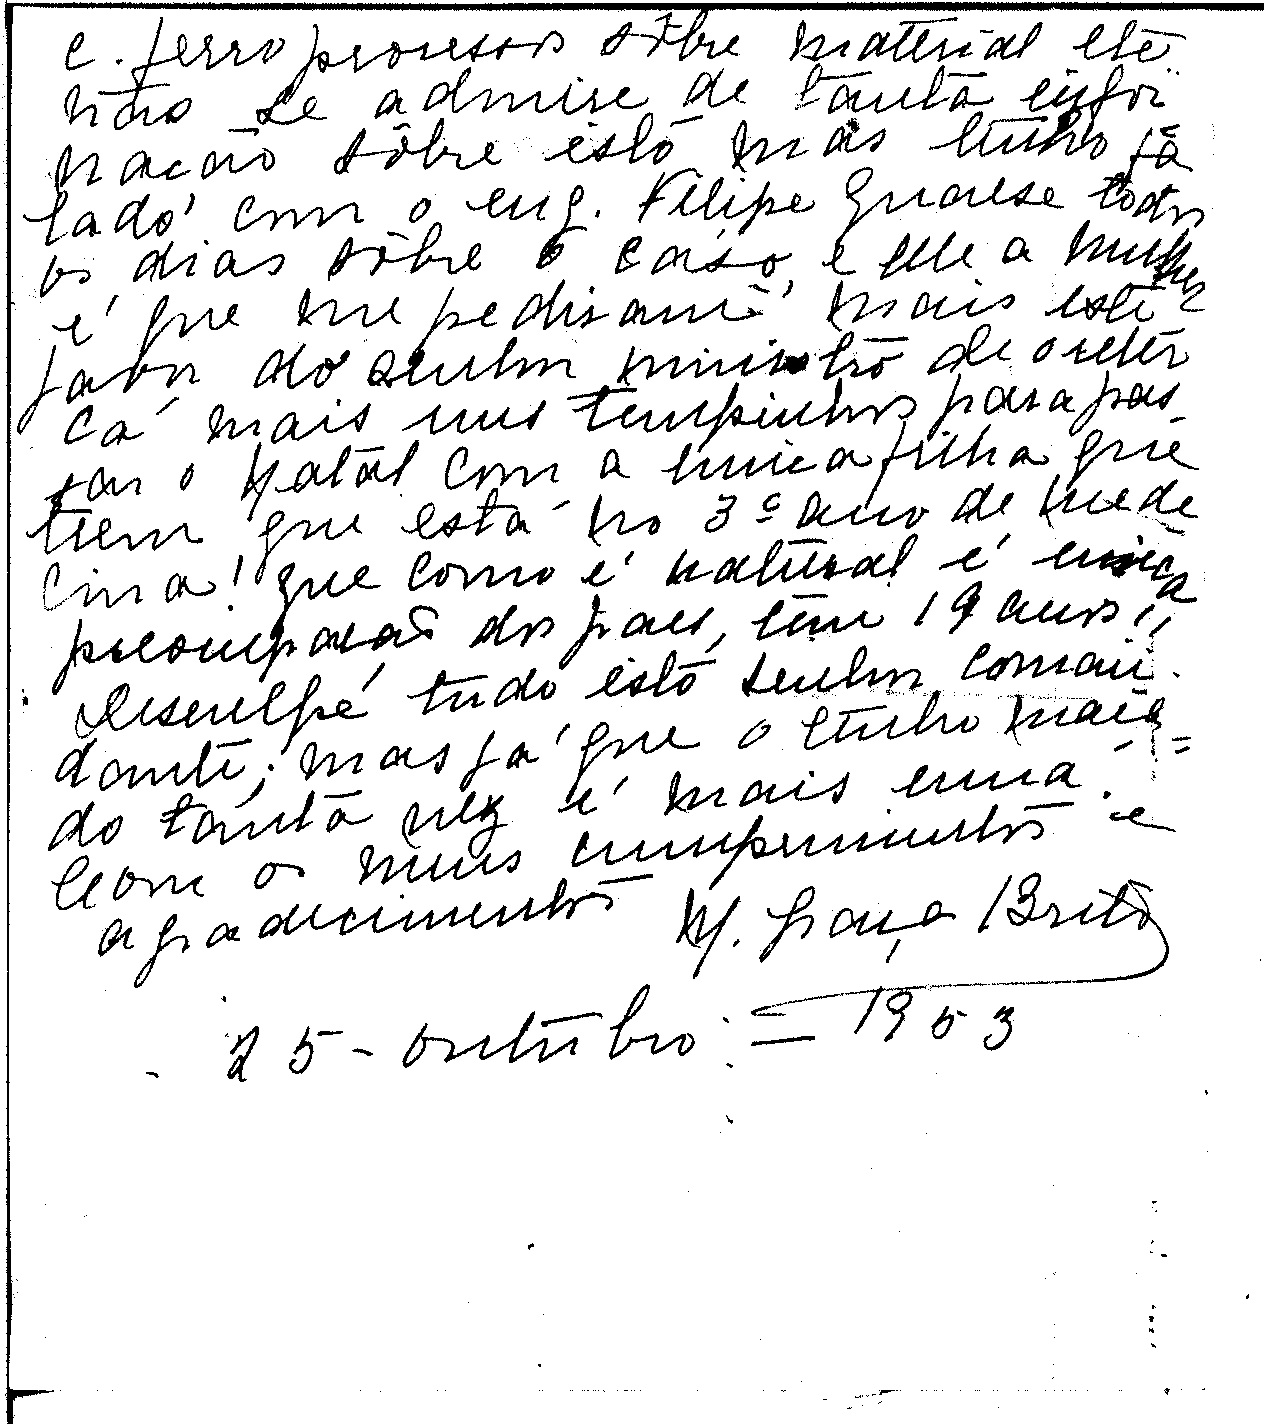 c. ferro processos sôbre material etc
não se admire de tanta infor
mação sôbre isto mas tenho fa
lado com o eng. Filipe quaese todos
os dias sôbre o caso, e elle a mulher
é que me pediram mais este
favor do senhor ministro de o reter
cá mais uns tempinhos para pas
sar o Natal com a unica filha que
tiem que está no 3º ano de mede
cina! que como é natural é unica
preocupacão dos paes, têm 19 anos!,
Desculpe tudo isto senhor coman-
dante; mas já que o tenho maça
do tanta vez é mais uma.
Com os meus cumprimentos e
agradecimentos M. Graça Brito
25 - outubro = 1953